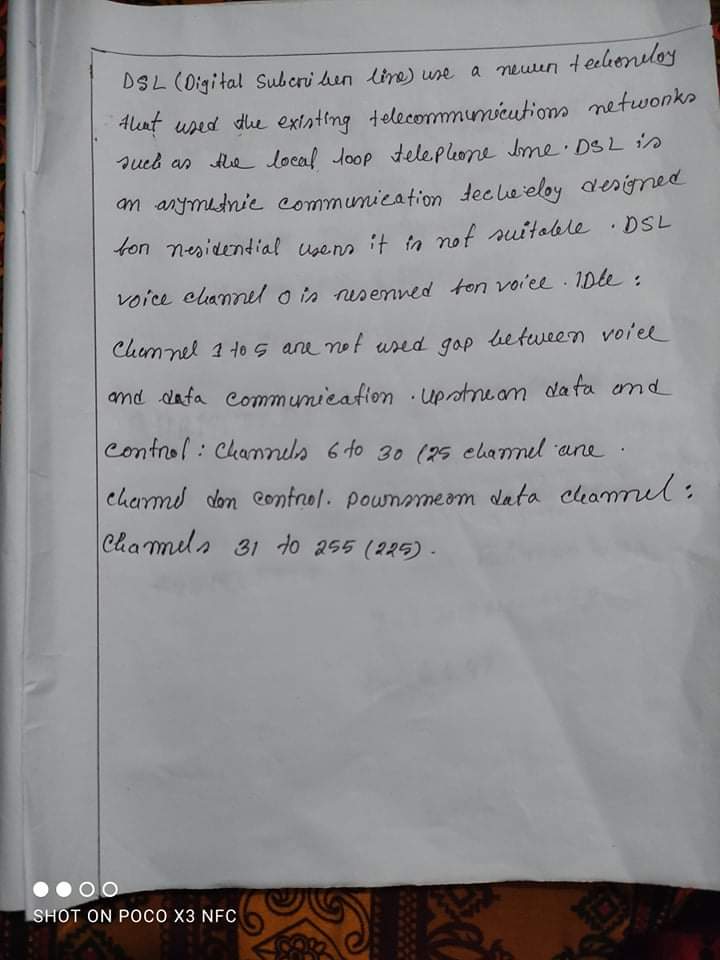 DSL (Digital Subcriber line) use a newer techonoloy
that used the existing telecommunications networks
such as the local loop telephone line. DSL is
an asymetric communication techeloy designed
for residential users it is not suitable. DSL
voice channel 0 is reserved for voice. IDle:
Channel 1 to 5 are not used gap between voice
and data communication. Upstream data and
control: Channels 6 to 30 (25 channel are
channel control. Downsmeam data channel:
Channels 31 to 255 (225).
SHOT ON POCO X3 NFC